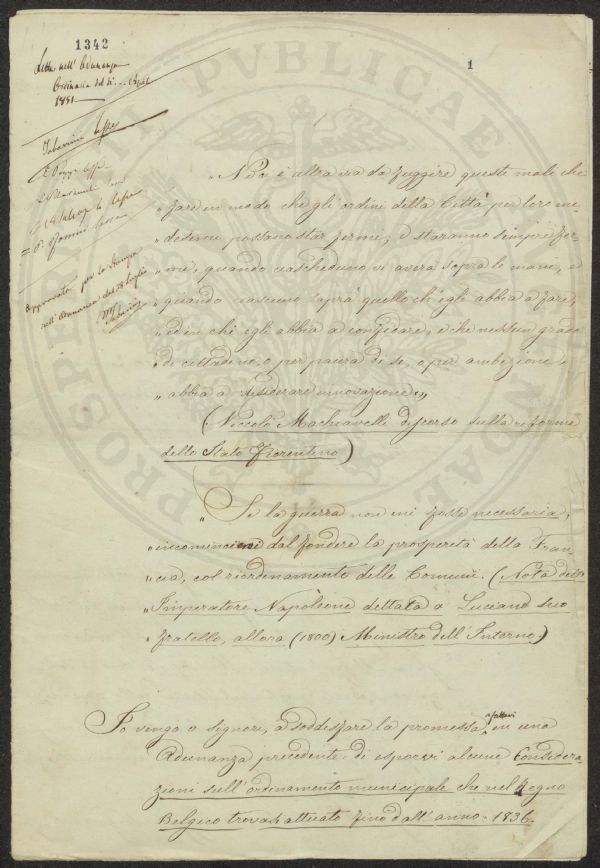 1342
1
Letta nell' Adunanza
Ordinaria del dì ... Aprile
1851
Tabarrini
Approvata per la stampa
nell' Adunanza del luglio
Tabarrini
PROSPERITATI PVBLICAE AVGENDAE
"Non è altra via da fuggire questo male che
"fare in modo che gli ordini della Città per loro me-
"desimi possano star fermi; e staranno sempre fer-
"mi, quando ciascheduno vi averà sopra le mani, e
"quando ciascuno saprà quello ch'egli abbia a fare,
"ed in chi egli abbia a confidare, e che nessun grado
"di cittadino, o per paura di se, o per ambizione
"abbia a desiderare innovazione"
(Niccolò Machiavelli discorso sulla riforma
dello Stato Fiorentino)
"Se la guerra non mi fosse necessaria,
"incomincierei dal fondere la prosperità della Fran-
"cia, col riordinamento delle Comuni. (Nota dello
"Imperatore Napoleone dettata a Luciano suo
"fratello, allora (1800) Ministro dell'Interno.)
Io vengo o signori, a soddisfare la promessa fattavi in una
Adunanza precedente di esporvi alcune Considera-
zioni sull'ordinamento municipale che nel Regno
Belgico trovasi attuato fino dall'anno 1836.